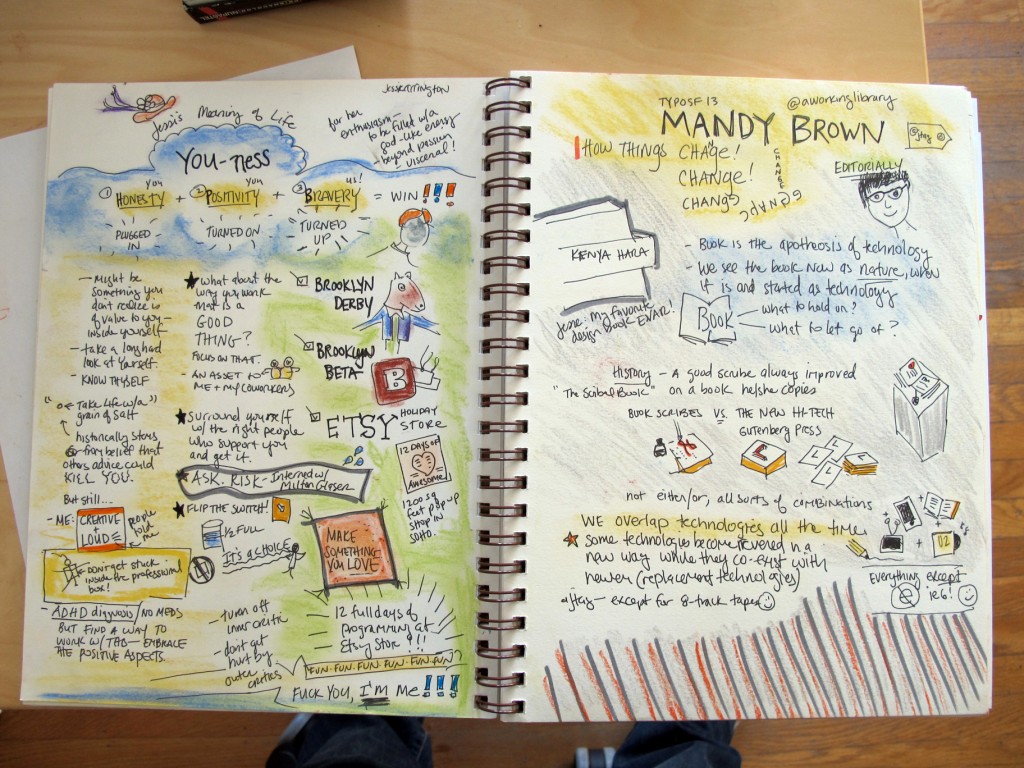 Jessi's Meaning of Life
YOU-NESS
for her
enthusiasm—
to be filled w/a
god-like energy
-beyond passion
visceral!
① HONESTY + ② POSITIVITY + ③ BRAVERY = WIN!!!
you
you
us!
PLUGGED IN
TURNED ON
TURNED UP
- Might be
something you
don't realize is
of value to you -
inside yourself
- take a long hard
look at yourself.
- KNOW THYSELF
"take life w/a
grain of salt"
historically stories
belief that
others advice could
KILL YOU.
But still...
- ME: CREATIVE & LOUD
people
told
me
- Don't get stuck
inside the professional
box!
- ADHD diagnosis/NO MEDS
BUT FIND A WAY TO
WORK W/THIS - EMBRACE
THE POSITIVE ASPECTS.
★ what about the
way you work
that is a
GOOD
THING?
FOCUS ON THAT.
- AN ASSET TO
ME + MY COWORKERS
★ Surround yourself
w/ the right people
who support you
and get it.
★ ASK. RISK - Interned w/
Milton Glaser
★ FLIP THE SWITCH!
½ FULL
IT'S A CHOICE
- turn off
inner critic
- don't get
hurt by
outer critics
BROOKLYN
DERBY
BROOKLYN
BETA
B
ETSY HOLIDAY
STORE
12 DAYS OF
AWESOME
1200 sq
feet pop up
shop in
SOHO.
MAKE
SOMETHING
YOU LOVE
12 full days of
programming at
Etsy Store!!!
FUN. FUN. FUN. FUN. FUN. FUN?
FUCK YOU, I'M ME!!!
TYPOSF 13
@aworkinglibrary
MANDY BROWN
@jtag
HOW THINGS CHANGE!
CHANGE!
CHANGE
CHANGE
CHANGE
EDITORIALLY
KENYA HARA
Jesse: My favorite
design Book EVAR!
- BOOK IS THE APOTHEOSIS OF TECHNOLOGY
- WE SEE THE BOOK NOW AS NATURE, WHEN
IT IS AND STARTED AS TECHNOLOGY
BOOK
what to hold on?
what to let go of?
HISTORY - A good scribe always improved
on a book he/she copies
BOOK SCRIBES VS. THE NEW HI-TECH
GUTENBERG PRESS
L
L
L
L
not either/or, all sorts of combinations
★ WE overlap technologies all the time
some technologies become revered in a
new way while they co-exist with
newer (replacement technologies)
@jtag - except for 8-track tapes
EVERYTHING EXCEPT
ie6!